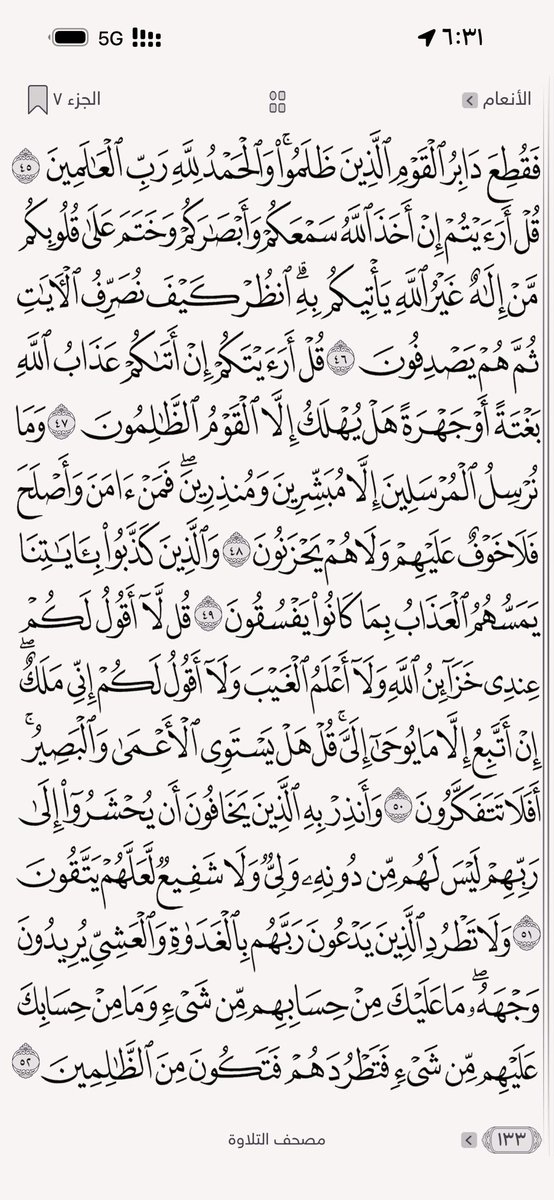 ٦:٣١ 5G
الأنعام الجزء ٧
فَقُطِعَ دَابِرُ ٱلۡقَوۡمِ ٱلَّذِينَ ظَلَمُواْۚ وَٱلۡحَمۡدُ لِلَّهِ رَبِّ ٱلۡعَٰلَمِينَ ٤٥
قُلۡ أَرَءَيۡتُمۡ إِنۡ أَخَذَ ٱللَّهُ سَمۡعَكُمۡ وَأَبۡصَٰرَكُمۡ وَخَتَمَ عَلَىٰ قُلُوبِكُم
مَّنۡ إِلَٰهٌ غَيۡرُ ٱللَّهِ يَأۡتِيكُم بِهِۗ ٱنظُرۡ كَيۡفَ نُصَرِّفُ ٱلۡأٓيَٰتِ
ثُمَّ هُمۡ يَصۡدِفُونَ ٤٦ قُلۡ أَرَءَيۡتَكُمۡ إِنۡ أَتَىٰكُمۡ عَذَابُ ٱللَّهِ
بَغۡتَةً أَوۡ جَهۡرَةً هَلۡ يُهۡلَكُ إِلَّا ٱلۡقَوۡمُ ٱلظَّٰلِمُونَ ٤٧ وَمَا
نُرۡسِلُ ٱلۡمُرۡسَلِينَ إِلَّا مُبَشِّرِينَ وَمُنذِرِينَۖ فَمَنۡ ءَامَنَ وَأَصۡلَحَ
فَلَا خَوۡفٌ عَلَيۡهِمۡ وَلَا هُمۡ يَحۡزَنُونَ ٤٨ وَٱلَّذِينَ كَذَّبُواْ بِـَٔايَٰتِنَا
يَمَسُّهُمُ ٱلۡعَذَابُ بِمَا كَانُواْ يَفۡسُقُونَ ٤٩ قُل لَّآ أَقُولُ لَكُمۡ
عِندِي خَزَآئِنُ ٱللَّهِ وَلَآ أَعۡلَمُ ٱلۡغَيۡبَ وَلَآ أَقُولُ لَكُمۡ إِنِّي مَلَكٌۖ
إِنۡ أَتَّبِعُ إِلَّا مَا يُوحَىٰٓ إِلَيَّۚ قُلۡ هَلۡ يَسۡتَوِي ٱلۡأَعۡمَىٰ وَٱلۡبَصِيرُۚ
أَفَلَا تَتَفَكَّرُونَ ٥٠ وَأَنذِرۡ بِهِ ٱلَّذِينَ يَخَافُونَ أَن يُحۡشَرُوٓاْ إِلَىٰ
رَبِّهِمۡ لَيۡسَ لَهُم مِّن دُونِهِۦ وَلِيٌّ وَلَا شَفِيعٌ لَّعَلَّهُمۡ يَتَّقُونَ
٥١ وَلَا تَطۡرُدِ ٱلَّذِينَ يَدۡعُونَ رَبَّهُم بِٱلۡغَدَوٰةِ وَٱلۡعَشِيِّ يُرِيدُونَ
وَجۡهَهُۥۖ مَا عَلَيۡكَ مِنۡ حِسَابِهِم مِّن شَيۡءٖ وَمَا مِنۡ حِسَابِكَ
عَلَيۡهِم مِّن شَيۡءٖ فَتَطۡرُدَهُمۡ فَتَكُونَ مِنَ ٱلظَّٰلِمِينَ ٥٢
١٣٣ مصحف التلاوة